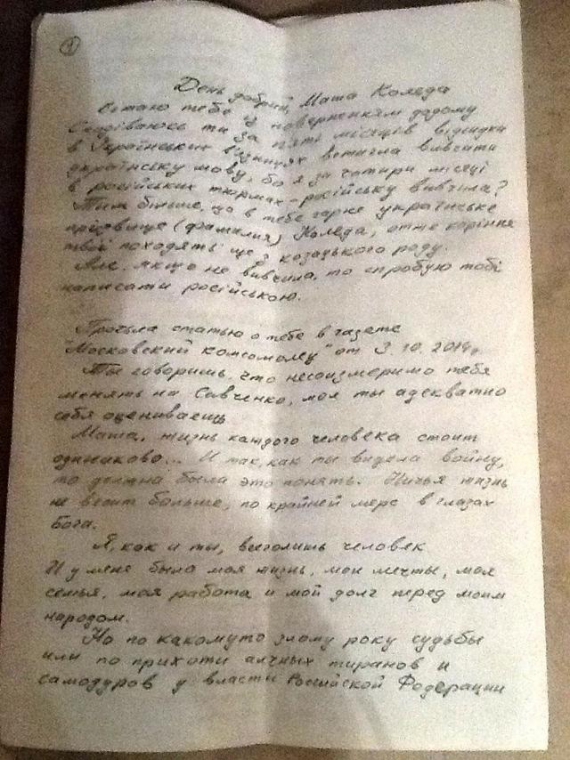 1
День добрий, Маша Коляда
Вітаю тебе із поверненням додому
Сподіваюсь ти за п'ять місяців відсидки
в Українських в'язницях встигла вивчити
українську мову, бо я за чотири місяці
в російських тюрмах - російську вивчила?
Тим більше, що в тебе гарне українське
прізвище (фамилия) Коляда, отже коріння
твої походять ще з козацького роду.
Але, якщо не вивчила, то спробую тобі
написати російською.
Прочла статью о тебе в газете
"Московский комсомолец" от 3.10.2014 г.
Ты говоришь, что несоизмеримо тебя
менять на Савченко, мол ты адекватно
себя оцениваешь
Маша, жизнь каждого человека стоит
одинаково... И так, как ты видела войну,
то должна была это понять. Ничья жизнь
не весит больше, по крайней мере в глазах
Бога.
Я, как и ты, всеголишь человек
И у меня была моя жизнь, мои мечты, моя
семья, моя работа и мой долг перед моим
народом.
Но по какомуто злому року судьбы
или по прихоти алчных тиранов и
самодуров у власти Российской Федерации